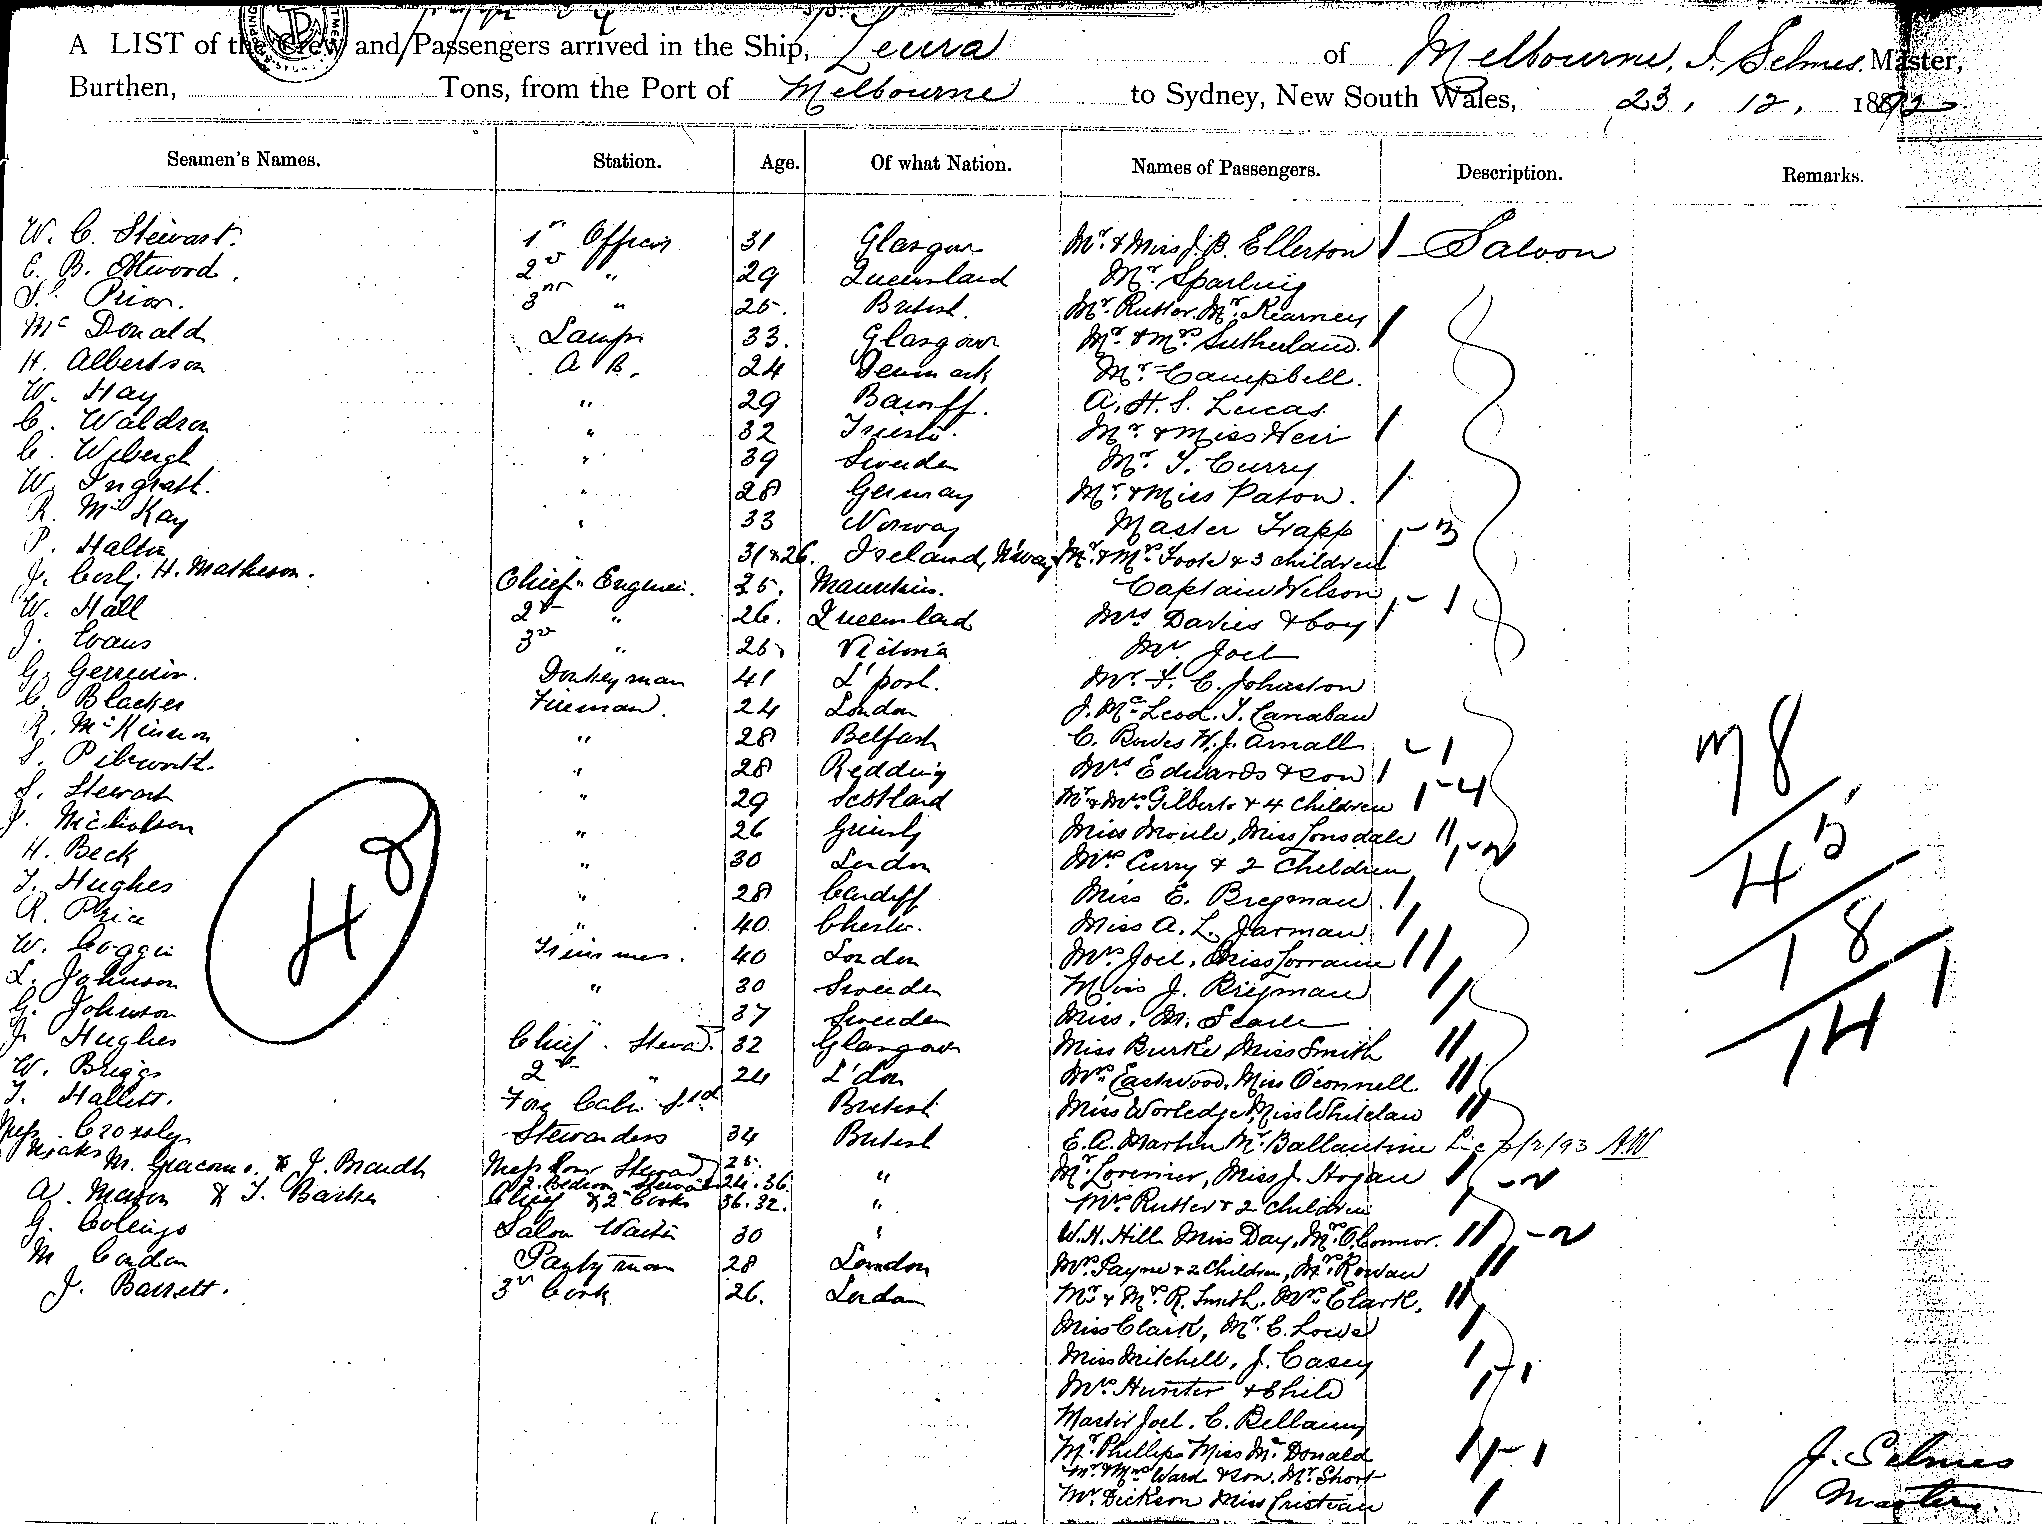 A LIST of the Crew and Passengers arrived in the Ship, Leura of Melbourne, J. Selmes. Master,
Burthen, Tons, from the Port of Melbourne to Sydney, New South Wales, 23. 12. 1892
Seamen's Names. Station. Age. Of what Nation. Names of Passengers. Description. Remarks.
W. C. Stewart. 1st Officer 31 Glasgow Mr. & Miss J. B. Ellerton 1 Saloon
E. B. Atwood. 2d " 29 Queensland Mr. Sparling
Prior. 3rd " 25. British. Mr. Rutter. Mr. Kearney
Mc Donald Lamps 33. Glasgow Mr. & Mrs. Sutherland. 1
H. Albertson A B. 24 Denmark Mr. Campbell.
W. Hay " 29 Banff. A. H. S. Lucas
C. Waldron " 32 Trieste. Mr. & Miss Weir 1
C. Wibergh " 39 Sweden Mr. T. Curry
W. " 28 Germany Mr. & Miss Paton. 1
R. McKay " 33 Norway Master Trapp
P. Halton 31 & 26. Ireland, Norway Mr. & Mrs. Foote & 3 children 1 - 3
J. H. Matheson. Chief Engineer. 25. Mauritius. Captain Wilson
W. Hall 2d " 26. Queensland Mrs Davies & boy 1 - 1
J. Evans 3d " 25 Victoria Mr. Joel
G. Donkeyman 41 L'pool. Mr. F. C. Johnston
C. Blacker Fireman. 24 London J. McLeod. T. Canaban
R. McKinnon " 28 Belfast C. Bowes W. J. Arnall
S. Pibworth. " 28 Redding Mrs Edwards & son 1 - 1
S. Stewart " 29 Scotland Mr & Mrs. Gilberts & 4 children 1 - 4
J. Nicholson " 26 Grimsby Miss Moule, Miss Lonsdale 11
H. Beck " 30 London Mrs Curry & 2 Children 1 - 2
T. Hughes " 28 Cardiff Miss E. Bregman. 1
R. Price " 40 Chester. Miss A. L. Jarman 1
W. Coggin Trimmer. 40 London Mrs Joel, Miss Lorraine 11
L. Johnson " 30 Sweden Miss J. Bregman 1
G. Johnson " 37 Sweden Miss. M. Searle 1
J. Hughes Chief Steward 32 Glasgow Miss Burke, Miss Smith 11
W. Briggs 2d " 24 L'don Mrs. Eastwood, Miss O'connell. 11
T. Hallett. Fore Cabin Std British Miss Worledge, Miss Whitelaw 11
Crossley Stewardess 34 British E. A. Martin Mr. Ballantine 93 AW
M. Giacomo. & J. Brandt Mess Room Steward 25. 2. Bedroom Steward 24. 36. " Mr. Lorimer, Miss J. Hogan 1
A. Mason & T. Barker Chief & 2d Cooks 36. 32. " Mrs. Rutter & 2 children 1 - 2
G. Collings Saloon Waiter 30 " W. H. Hill Miss Day, Mr. O'Connor. 11
M Condon Pantryman 28 London Mrs. Payne & 2 Children, Mrs. Rowan 11 - 2
J. Bassett. 3rd Cook 26. London Mr & Mrs. R. Smith. Mrs. Clark. 11
Miss Clark, Mr. C. Lowe 1
Miss Mitchell, J. Casey 1
Mrs. Hunter & Child 1 - 1
Master Joel. C. Bellamy
Mr. Phillips Miss McDonald 1
Mr & Mrs Ward & son, Mr. Short 1 - 1
Mr. Dickson Miss Cristian 1
48
M 78
45
18
14 1
J. Selmes
Master.